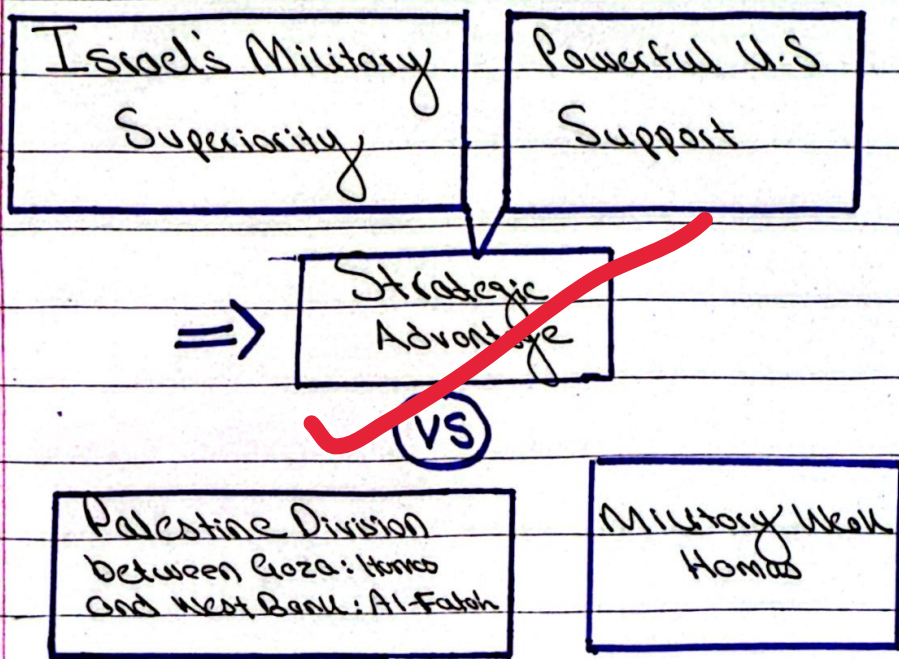 Israel's Military
Superiority
Powerful U.S
Support
Strategic
Advantage
VS
Palestine Division
between Gaza: Hamas
and West Bank: Al-Fatah
Military Weak
Hamas